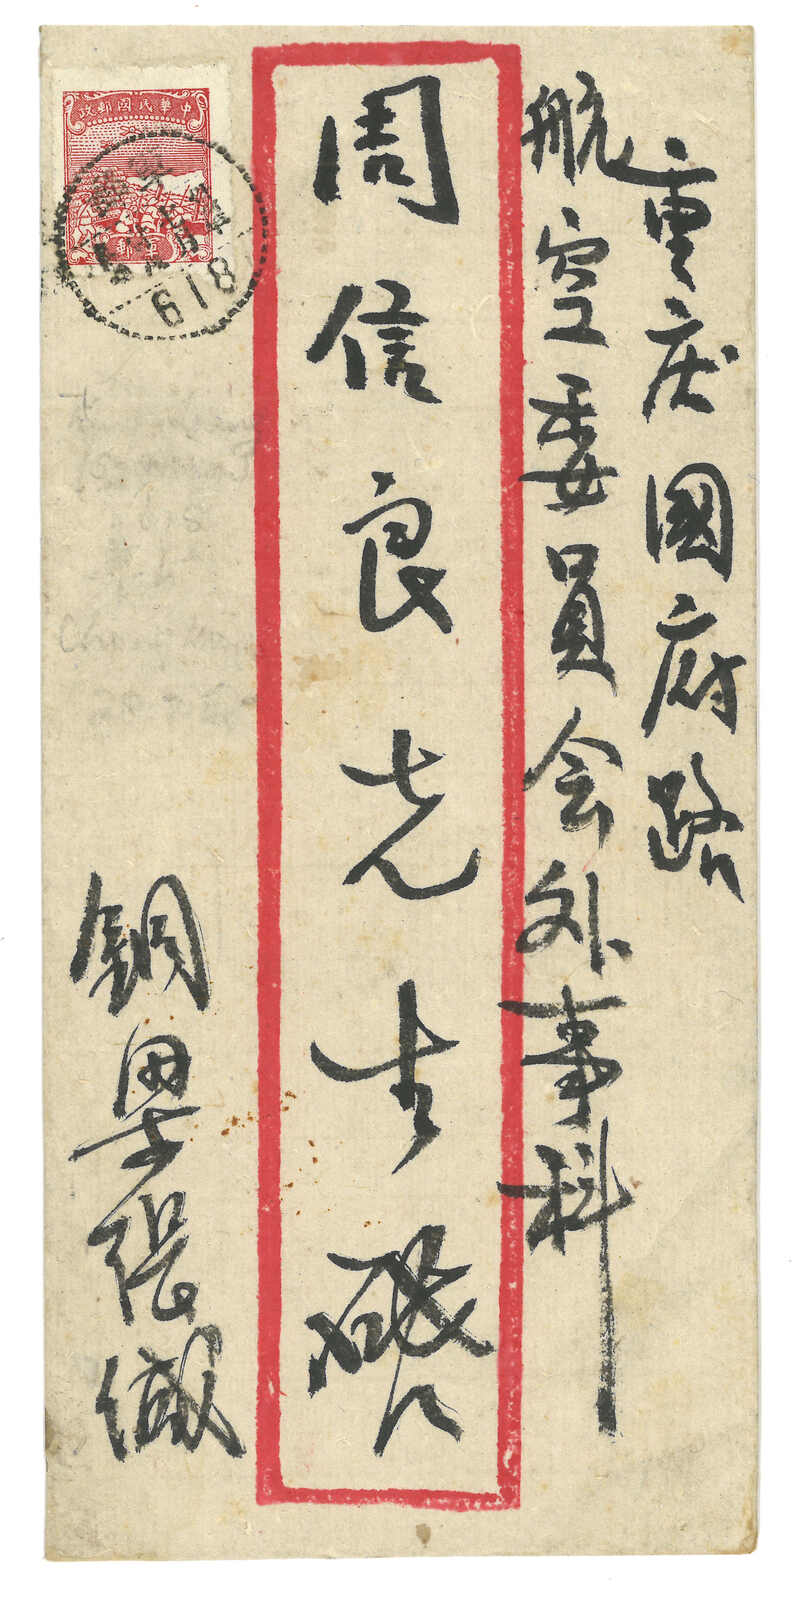 重庆國府路
航空委員会外事科
周信良先生啟
銅梁張緘
中華民國郵政
618